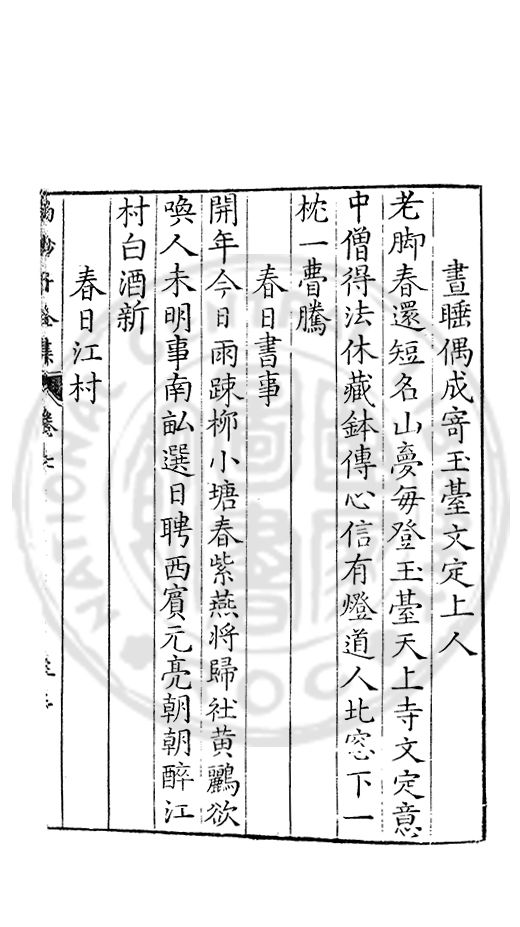 晝睡偶成寄玉臺文定上人
老脚春還短名山夢每登玉臺天上寺文定意
中僧得法休藏鉢傳心信有燈道人北窓下一
枕一瞢騰
春日書事
開年今日雨踈桺小塘春紫燕將歸社黄鸝欲
喚人未明事南畝選日聘西賓元亮朝朝醉江
村白酒新
春日江村